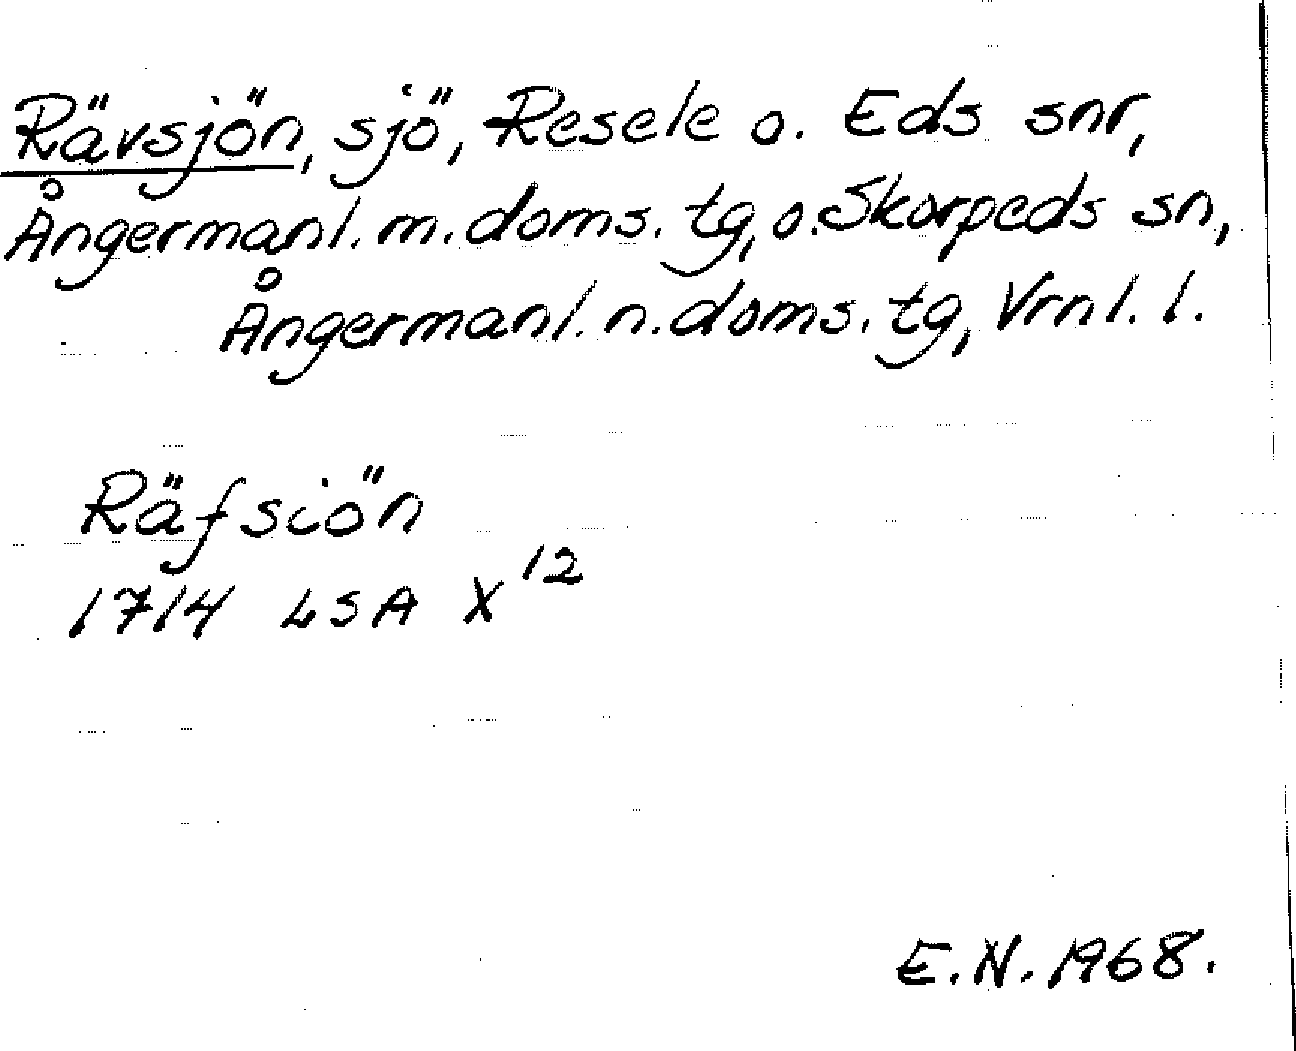 Rävsjön, sjö, Resele o. Eds snr,
Ångermanl. m. doms. tg, o. Skorpeds sn,
Ångermanl. n. doms. tg, Vrnl. l.
Räfsiön
1714 LSA X 12
E.N. 1968.